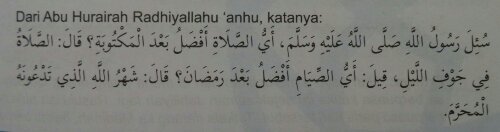 Dari Abu Hurairah Radhiyallahu ‘anhu, katanya:
سُئِلَ رَسُولُ اللَّهِ صَلَّى اللَّهُ عَلَيْهِ وَسَلَّمَ، أَيُّ الصَّلَاةِ أَفْضَلُ بَعْدَ الْمَكْتُوبَةِ؟ قَالَ: الصَّلَاةُ
فِي جَوْفِ اللَّيْلِ، قِيلَ: أَيُّ الصِّيَامِ أَفْضَلُ بَعْدَ رَمَضَانَ؟ قَالَ: شَهْرُ اللَّهِ الَّذِي تَدْعُونَهُ
الْمُحَرَّمَ.